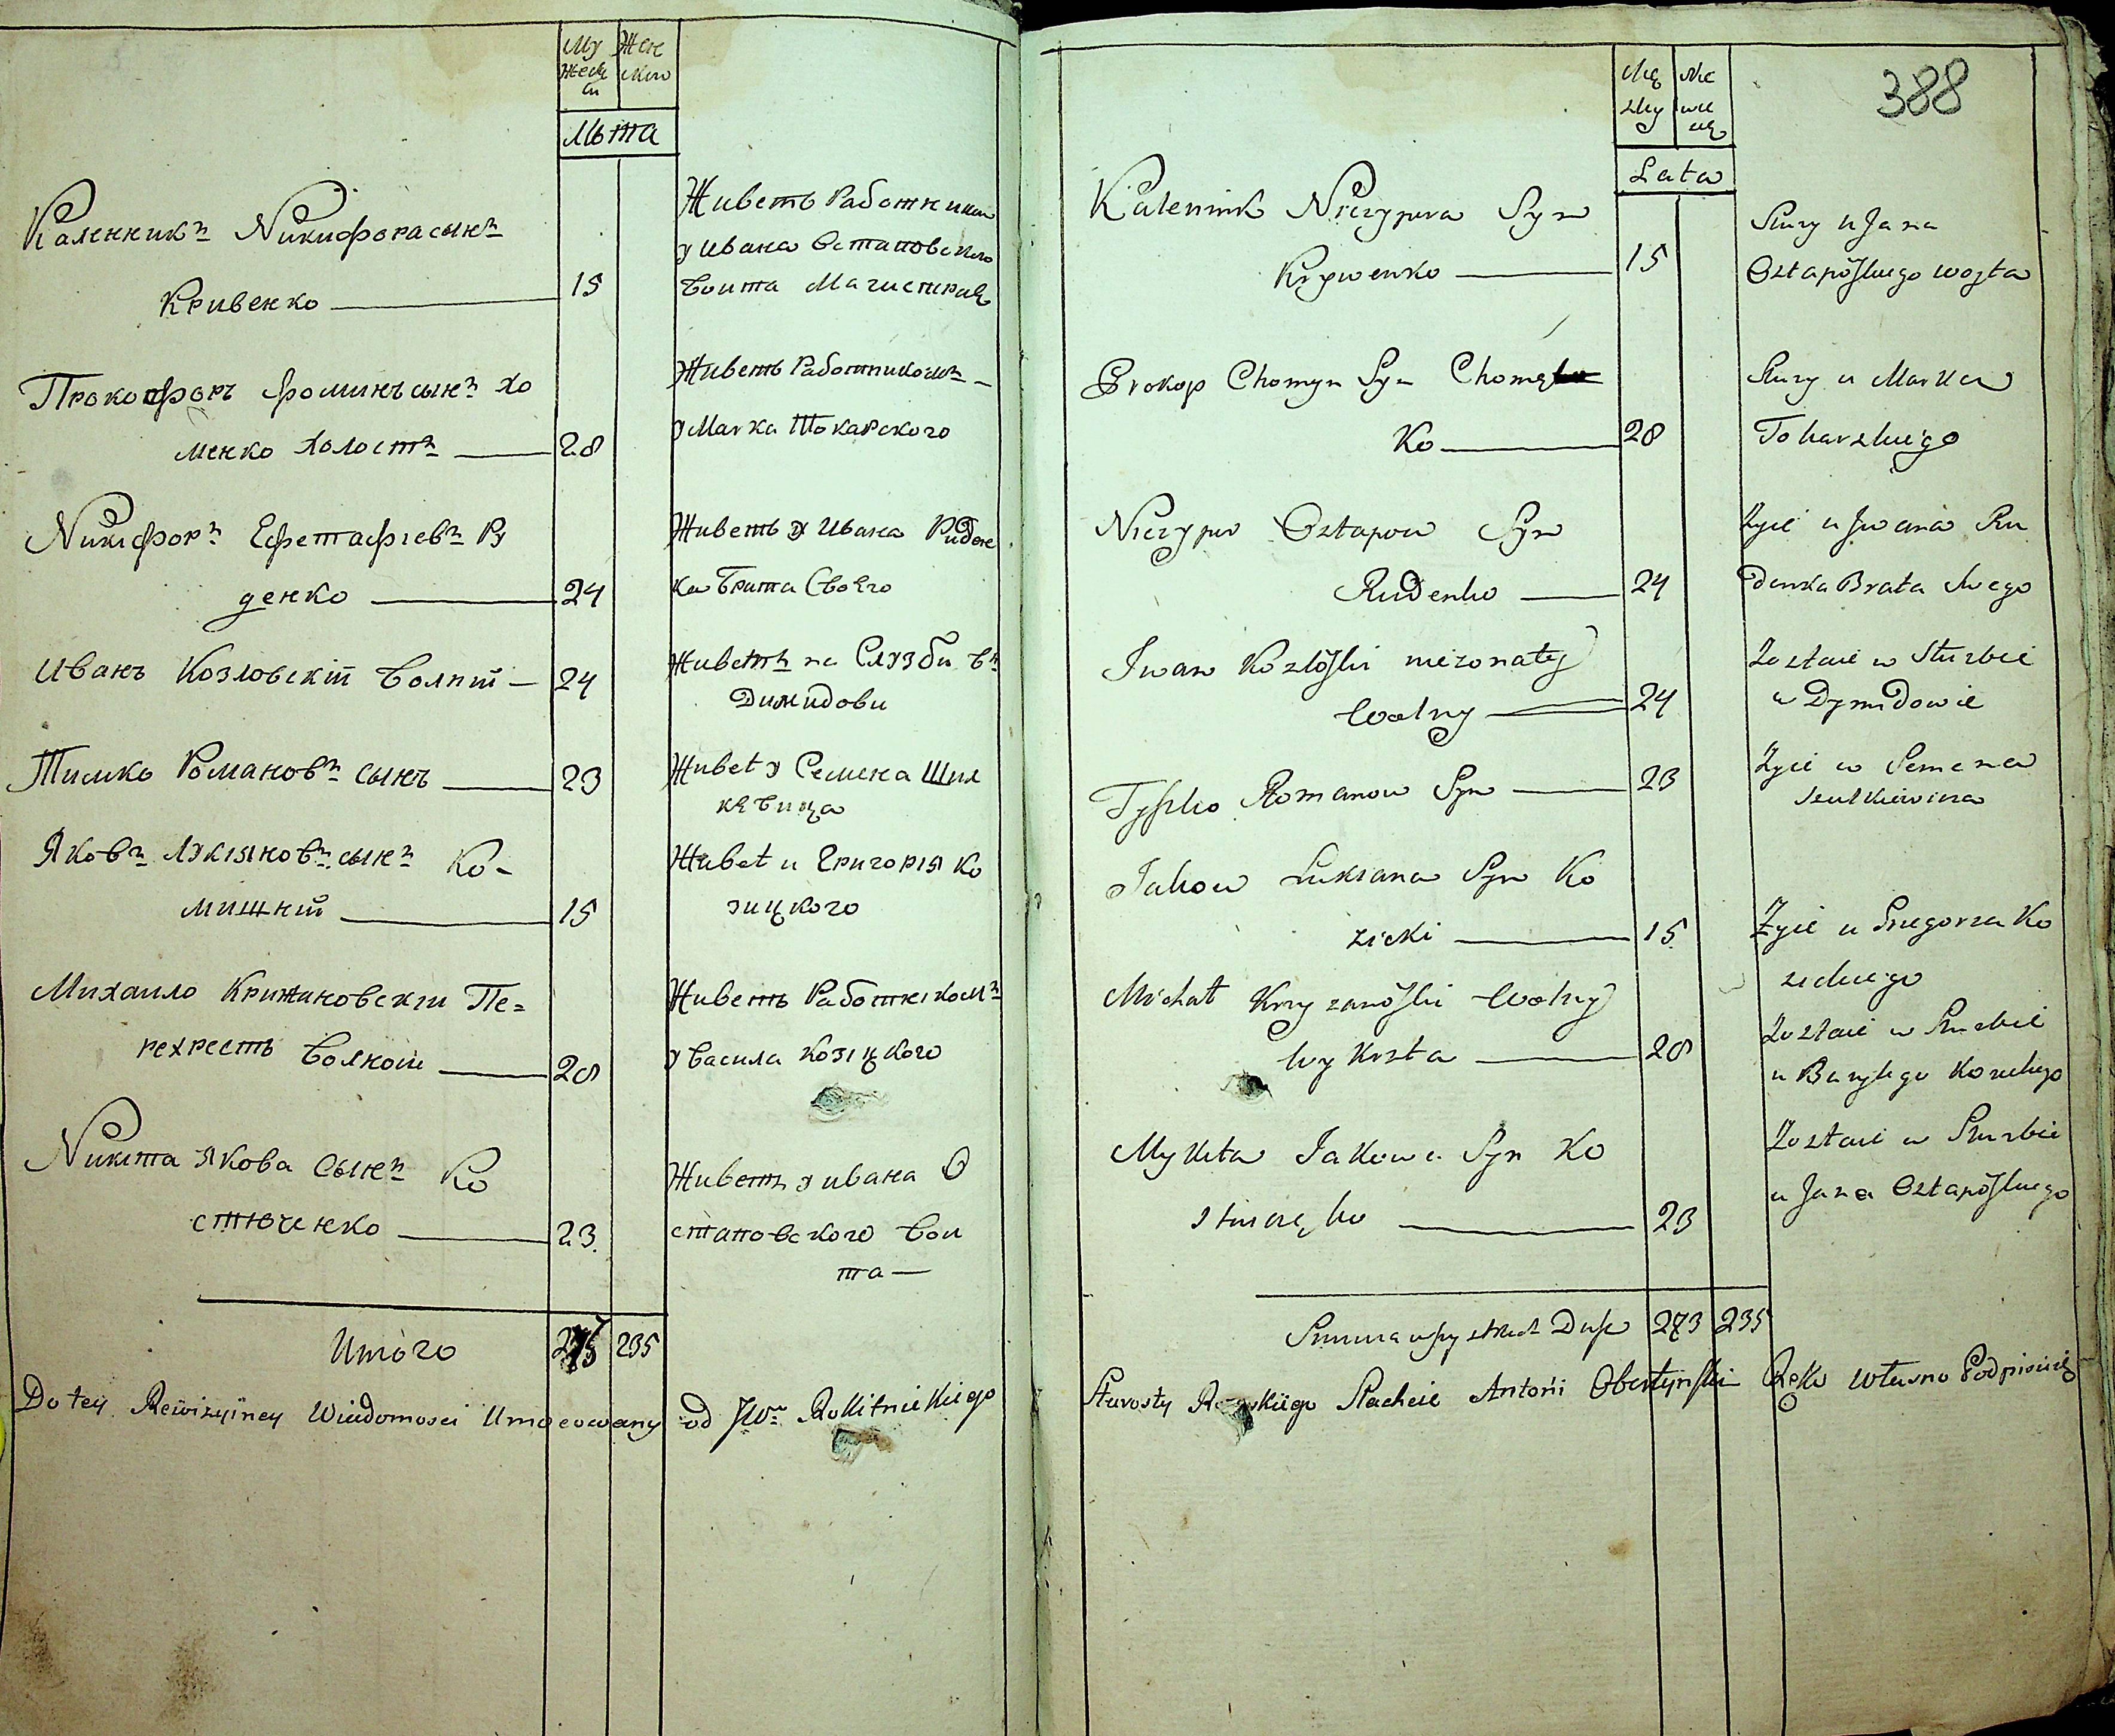 Му Жен
жеск ского
Лѣта
Каленникъ Никифора сынъ
Кривенко 15
Живетъ Работником
у Ивана Остаповского
Воита
Прокофоръ Фоминъ сынъ Хо
менко холостъ 28
Живетъ Работникомъ
у Марка Токарского
Никифоръ Ефетафіевъ Ру
денко 24
Живетъ у Ивана Руден
ка Брата Своего
Иванъ Козловскій Волний 24
Живетъ на Слузби въ
Димидови
Тимко Романовъ сынъ 23
Живеt у Семена Шил
кевица
Яковъ Лукіяновъ сынъ Ко-
мишний 15
Живеt и Григорія Ко
зицкого
Михаило Крижановскіи Пе=
рехрестъ Волной 28
Живетъ Работнікомъ
у Васила Козіцкого
Никіта Якова Сынъ Ко
стюченко 23.
Живетъ у ивана О
стаповского Вои
та
Итого 235
Do tey Rewizyiney Wiadomosci Umocowany od JWo Rokitnickiego
388
Lata
Kalennik Niczypora Syn
Krywenko 15
Służy u Jana
Osztaposkiego wojta
Prokop Chomyn Syn Chomę
ko 28
Służy u Marka
Tokarskiego
Niczypor Osztapow Syn
Rudenko 24
Zyie u Iwana Ru
denka Brata swego
Iwan Kozłoski niezonaty
Wolny 24
Zostaie w Służbie
w Dymidowie
Tyszko Romanow Syn 23
Zyie w Semena
Szulkiewicza
Jakow Lukiana Syn Ko
zicki 15
Zyie u Gregorza Ko
zickiego
Michał Krzyzanoski Wolny
wykrzta 28
Zostaie w Służbie
u Bazylego Kozickiego
Mykita Jakowa Syn Ko
23
Zostaie w Służbie
u Jana Osztaposkiego
Summa wszystkich Dusz 273 235
Starosty Stacheie Antoni Obertynski Ręko własno Podpisuię